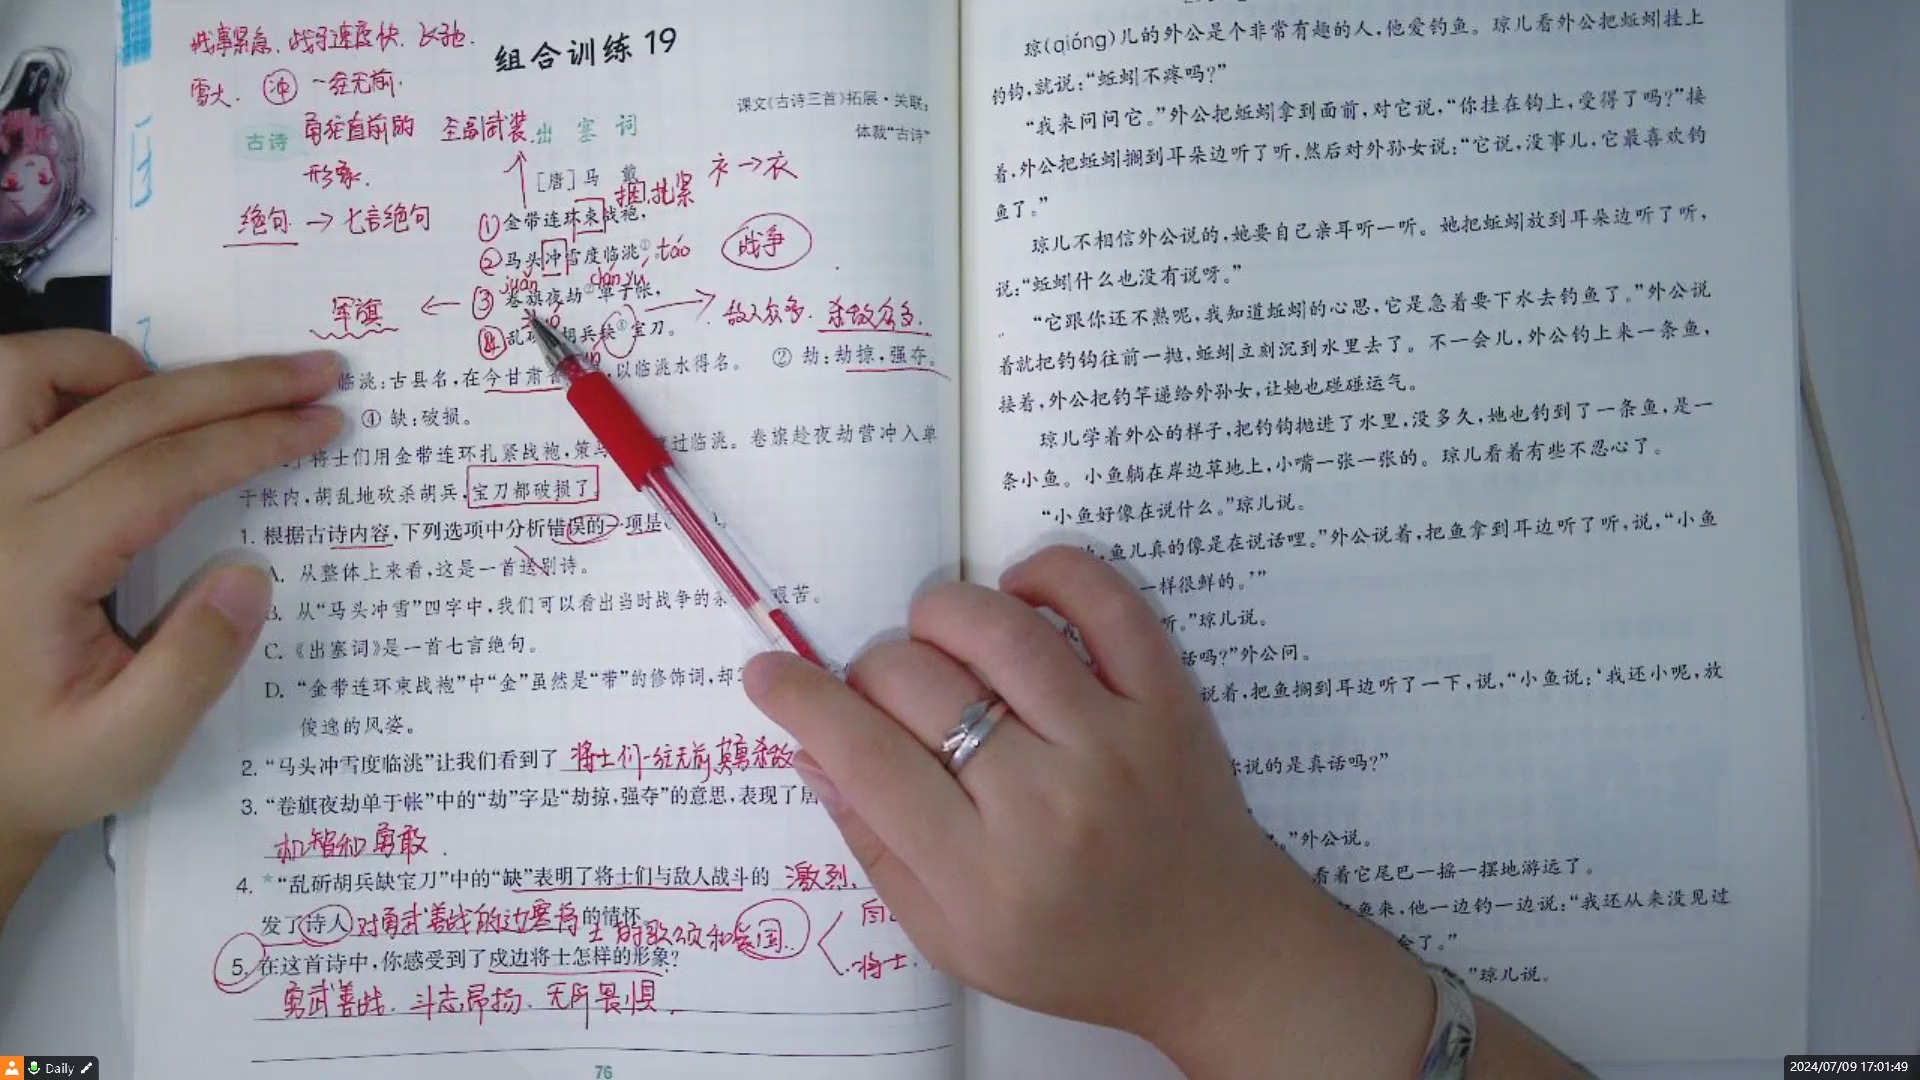 战事紧急,战马速度快
组合训练19
雪大. 冲 一往无前.
课文《古诗三首》拓展·关联:
体裁“古诗”
古诗 勇往直前的 全副武装 出塞词
形象.
[唐]马 戴
捆,扎紧 衤→衣
绝句 → 七言绝句
①金带连环束战袍,
②马头冲雪度临洮①。táo 战争
juǎn chán yú
军旗 ← ③卷旗夜劫②单于帐, → 敌人众多. 杀敌众多.
④乱 胡兵缺 宝刀。
临洮:古县名,在今甘肃 ,以临洮水得名。 ② 劫:劫掠,强夺。
④ 缺:破损。
将士们用金带连环扎紧战袍,策马 过临洮。卷旗趁夜劫营冲入单
于帐内,胡乱地砍杀胡兵,宝刀都破损了
1. 根据古诗内容,下列选项中分析错误的一项是
A. 从整体上来看,这是一首送别诗。
B. 从“马头冲雪”四字中,我们可以看出当时战争的 艰苦。
C.《出塞词》是一首七言绝句。
D. “金带连环束战袍”中“金”虽然是“带”的修饰词,却
俊逸的风姿。
2. “马头冲雪度临洮”让我们看到了 将士们一往无前 英勇杀敌
3. “卷旗夜劫单于帐”中的“劫”字是“劫掠,强夺”的意思,表现了
机智和勇敢.
4. *“乱斫胡兵缺宝刀”中的“缺”表明了将士们与敌人战斗的 激烈,
发了诗人 对勇武善战的边塞将士的歌颂和爱国 的情怀。
将士.
5. 在这首诗中,你感受到了戍边将士怎样的形象?
勇武善战. 斗志昂扬. 无所畏惧.
76
琼(qióng)儿的外公是个非常有趣的人,他爱钓鱼。琼儿看外公把蚯蚓挂上
钓钩,就说:“蚯蚓不疼吗?”
“我来问问它。”外公把蚯蚓拿到面前,对它说,“你挂在钩上,受得了吗?”接
着,外公把蚯蚓搁到耳朵边听了听,然后对外孙女说:“它说,没事儿,它最喜欢钓
鱼了。”
琼儿不相信外公说的,她要自己亲耳听一听。她把蚯蚓放到耳朵边听了听,
说:“蚯蚓什么也没有说呀。”
“它跟你还不熟呢,我知道蚯蚓的心思,它是急着要下水去钓鱼了。”外公说
着就把钓钩往前一抛,蚯蚓立刻沉到水里去了。不一会儿,外公钓上来一条鱼,
接着,外公把钓竿递给外孙女,让她也碰碰运气。
琼儿学着外公的样子,把钓钩抛进了水里,没多久,她也钓到了一条鱼,是一
条小鱼。小鱼躺在岸边草地上,小嘴一张一张的。琼儿看着有些不忍心了。
“小鱼好像在说什么。”琼儿说。
,鱼儿真的像是在说话哩。”外公说着,把鱼拿到耳边听了听,说,“小鱼
一样很鲜的。’”
听。”琼儿说。
话吗?”外公问。
说着,把鱼搁到耳边听了一下,说,“小鱼说:‘我还小呢,放
你说的是真话吗?”
。”外公说。
看着它尾巴一摇一摆地游远了。
鱼来,他一边钓一边说:“我还从来没见过
会了。”
”琼儿说。
Daily
2024/07/09 17:01:49